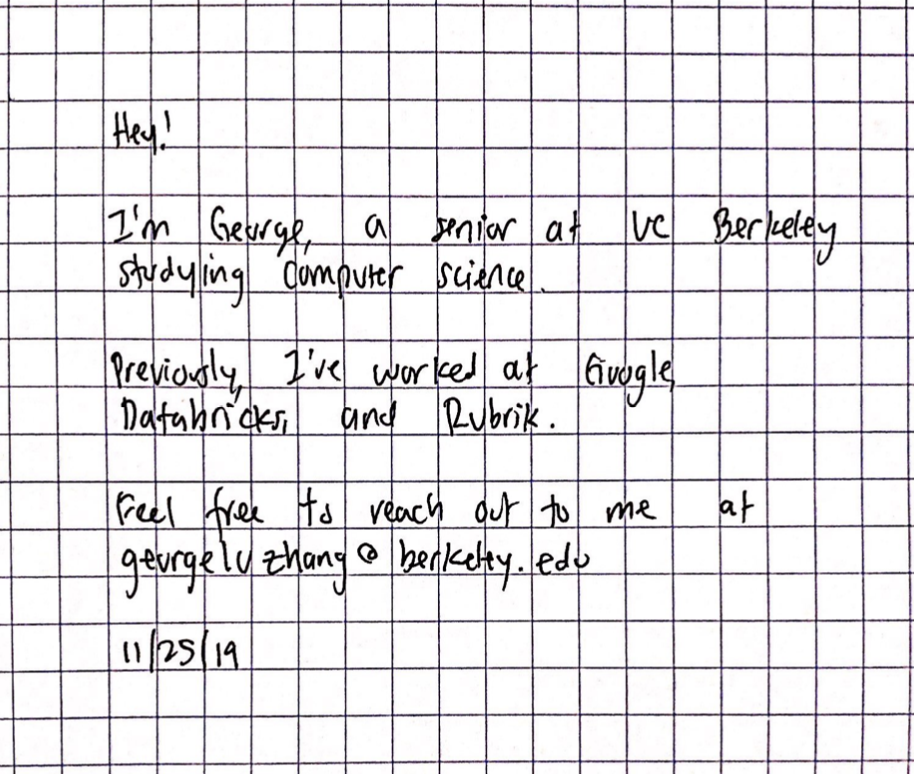 Hey!
I'm George, a senior at UC Berkeley
studying computer science.
Previously, I've worked at Google,
Databricks, and Rubrik.
Feel free to reach out to me at
georgeluzhang@berkeley.edu
11/25/19